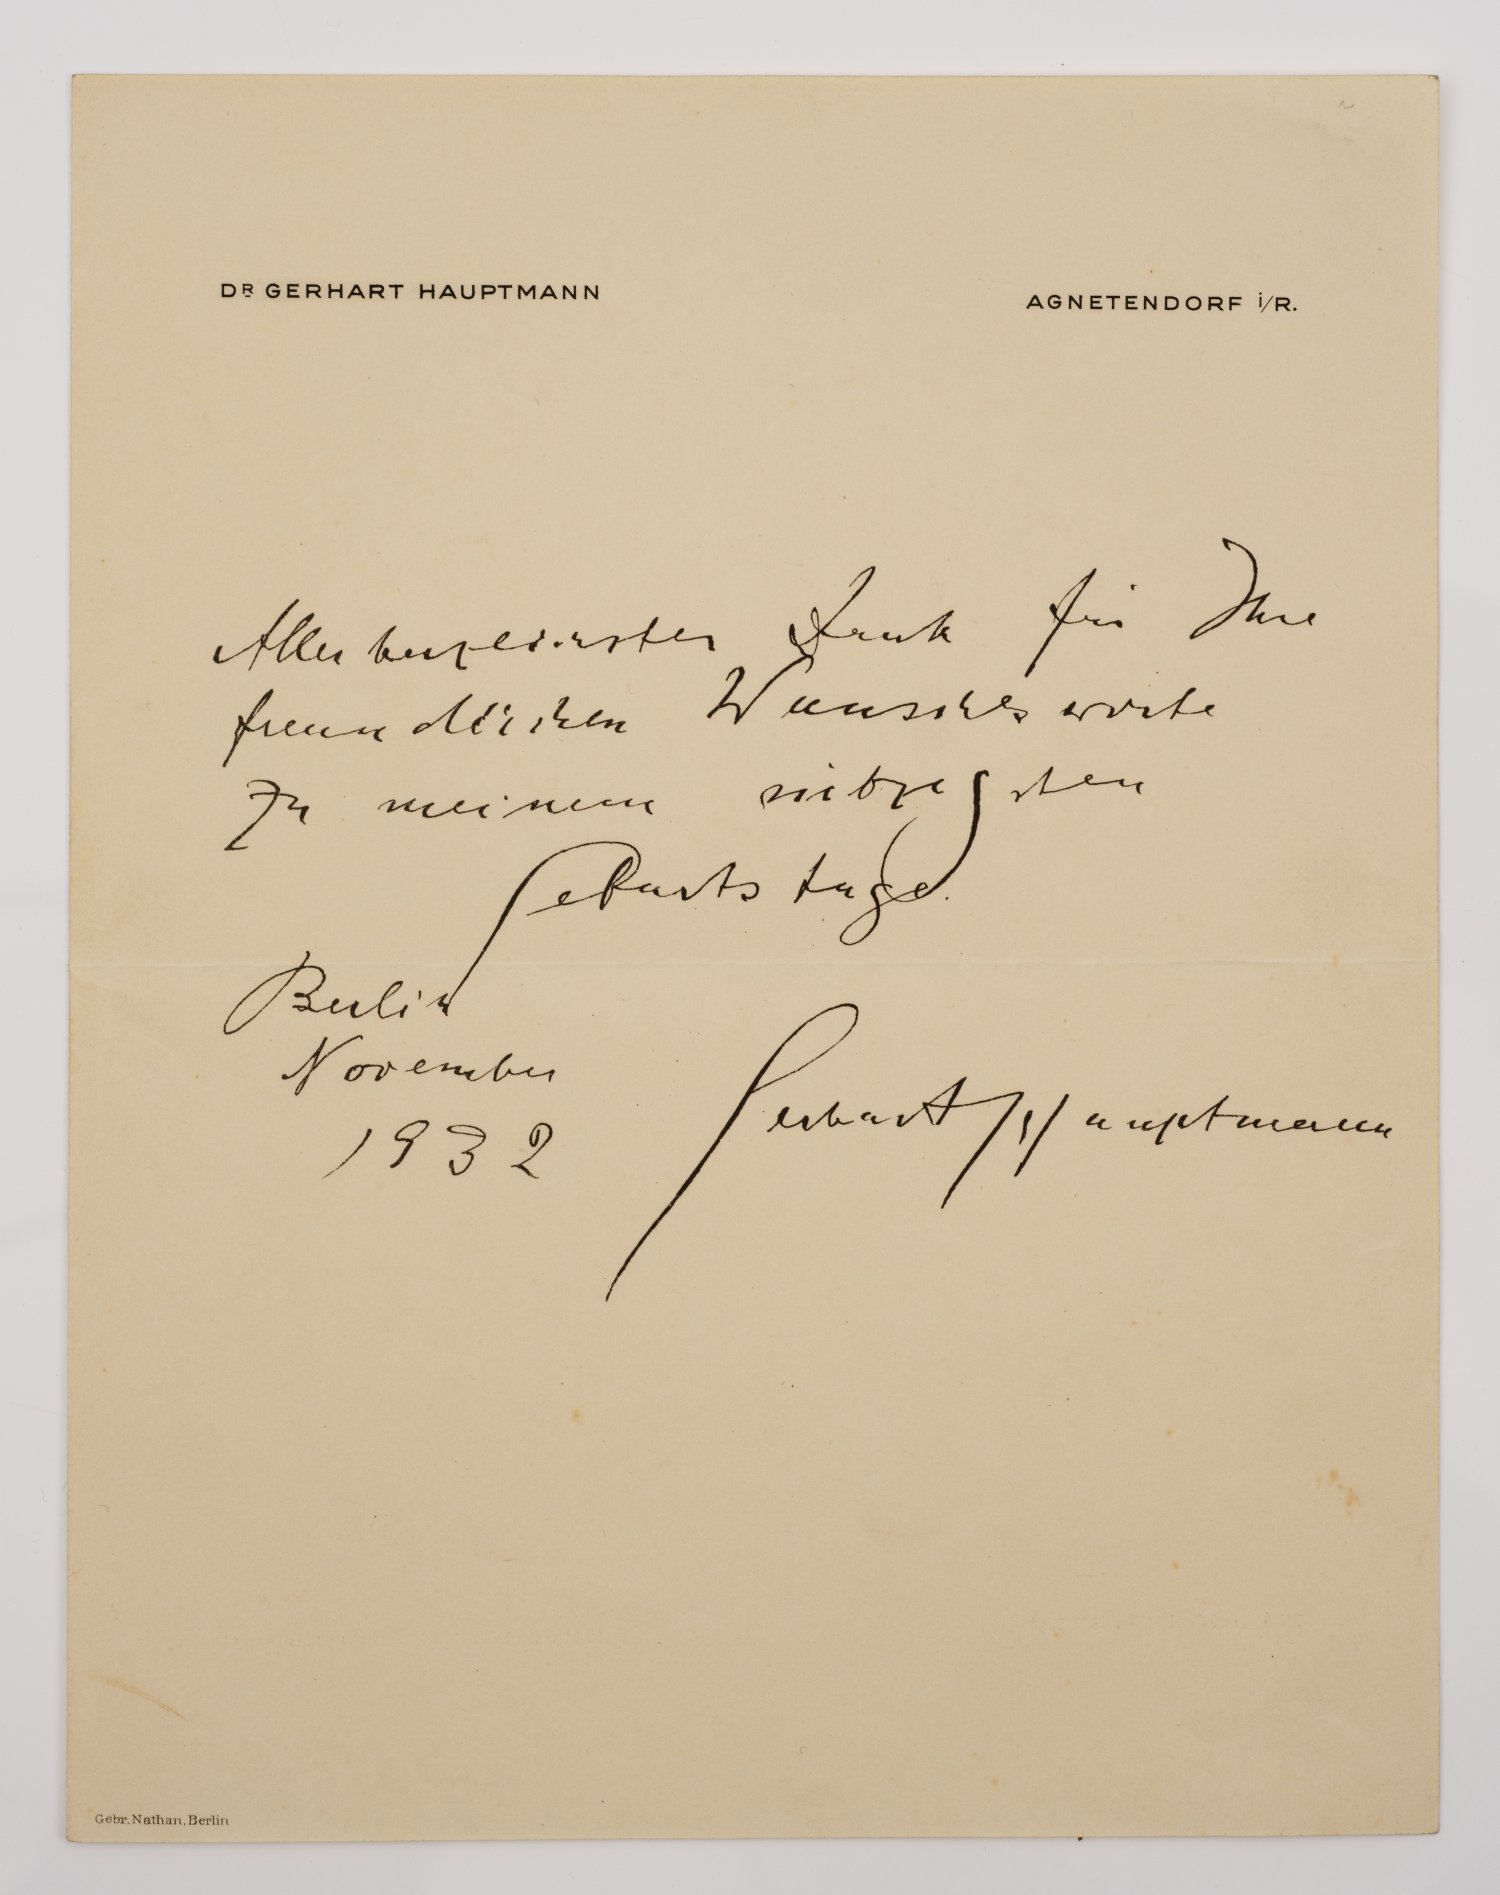 DR GERHART HAUPTMANN
AGNETENDORF i/R.
Allerherzlichster Dank für Ihre
freundlichen Wunschesworte
zu meinem siebzigsten
Geburtstage.
Berlin
November
1932
Gerhart Hauptmann
Gebr. Nathan, Berlin